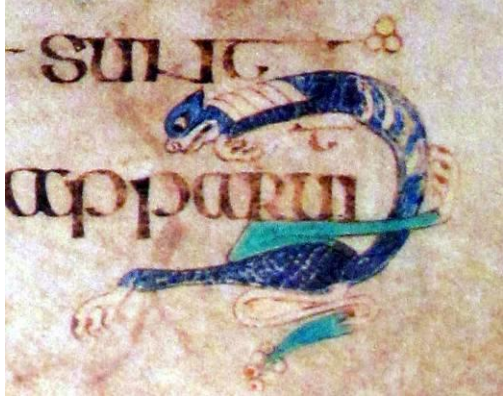 sunt
apparuit